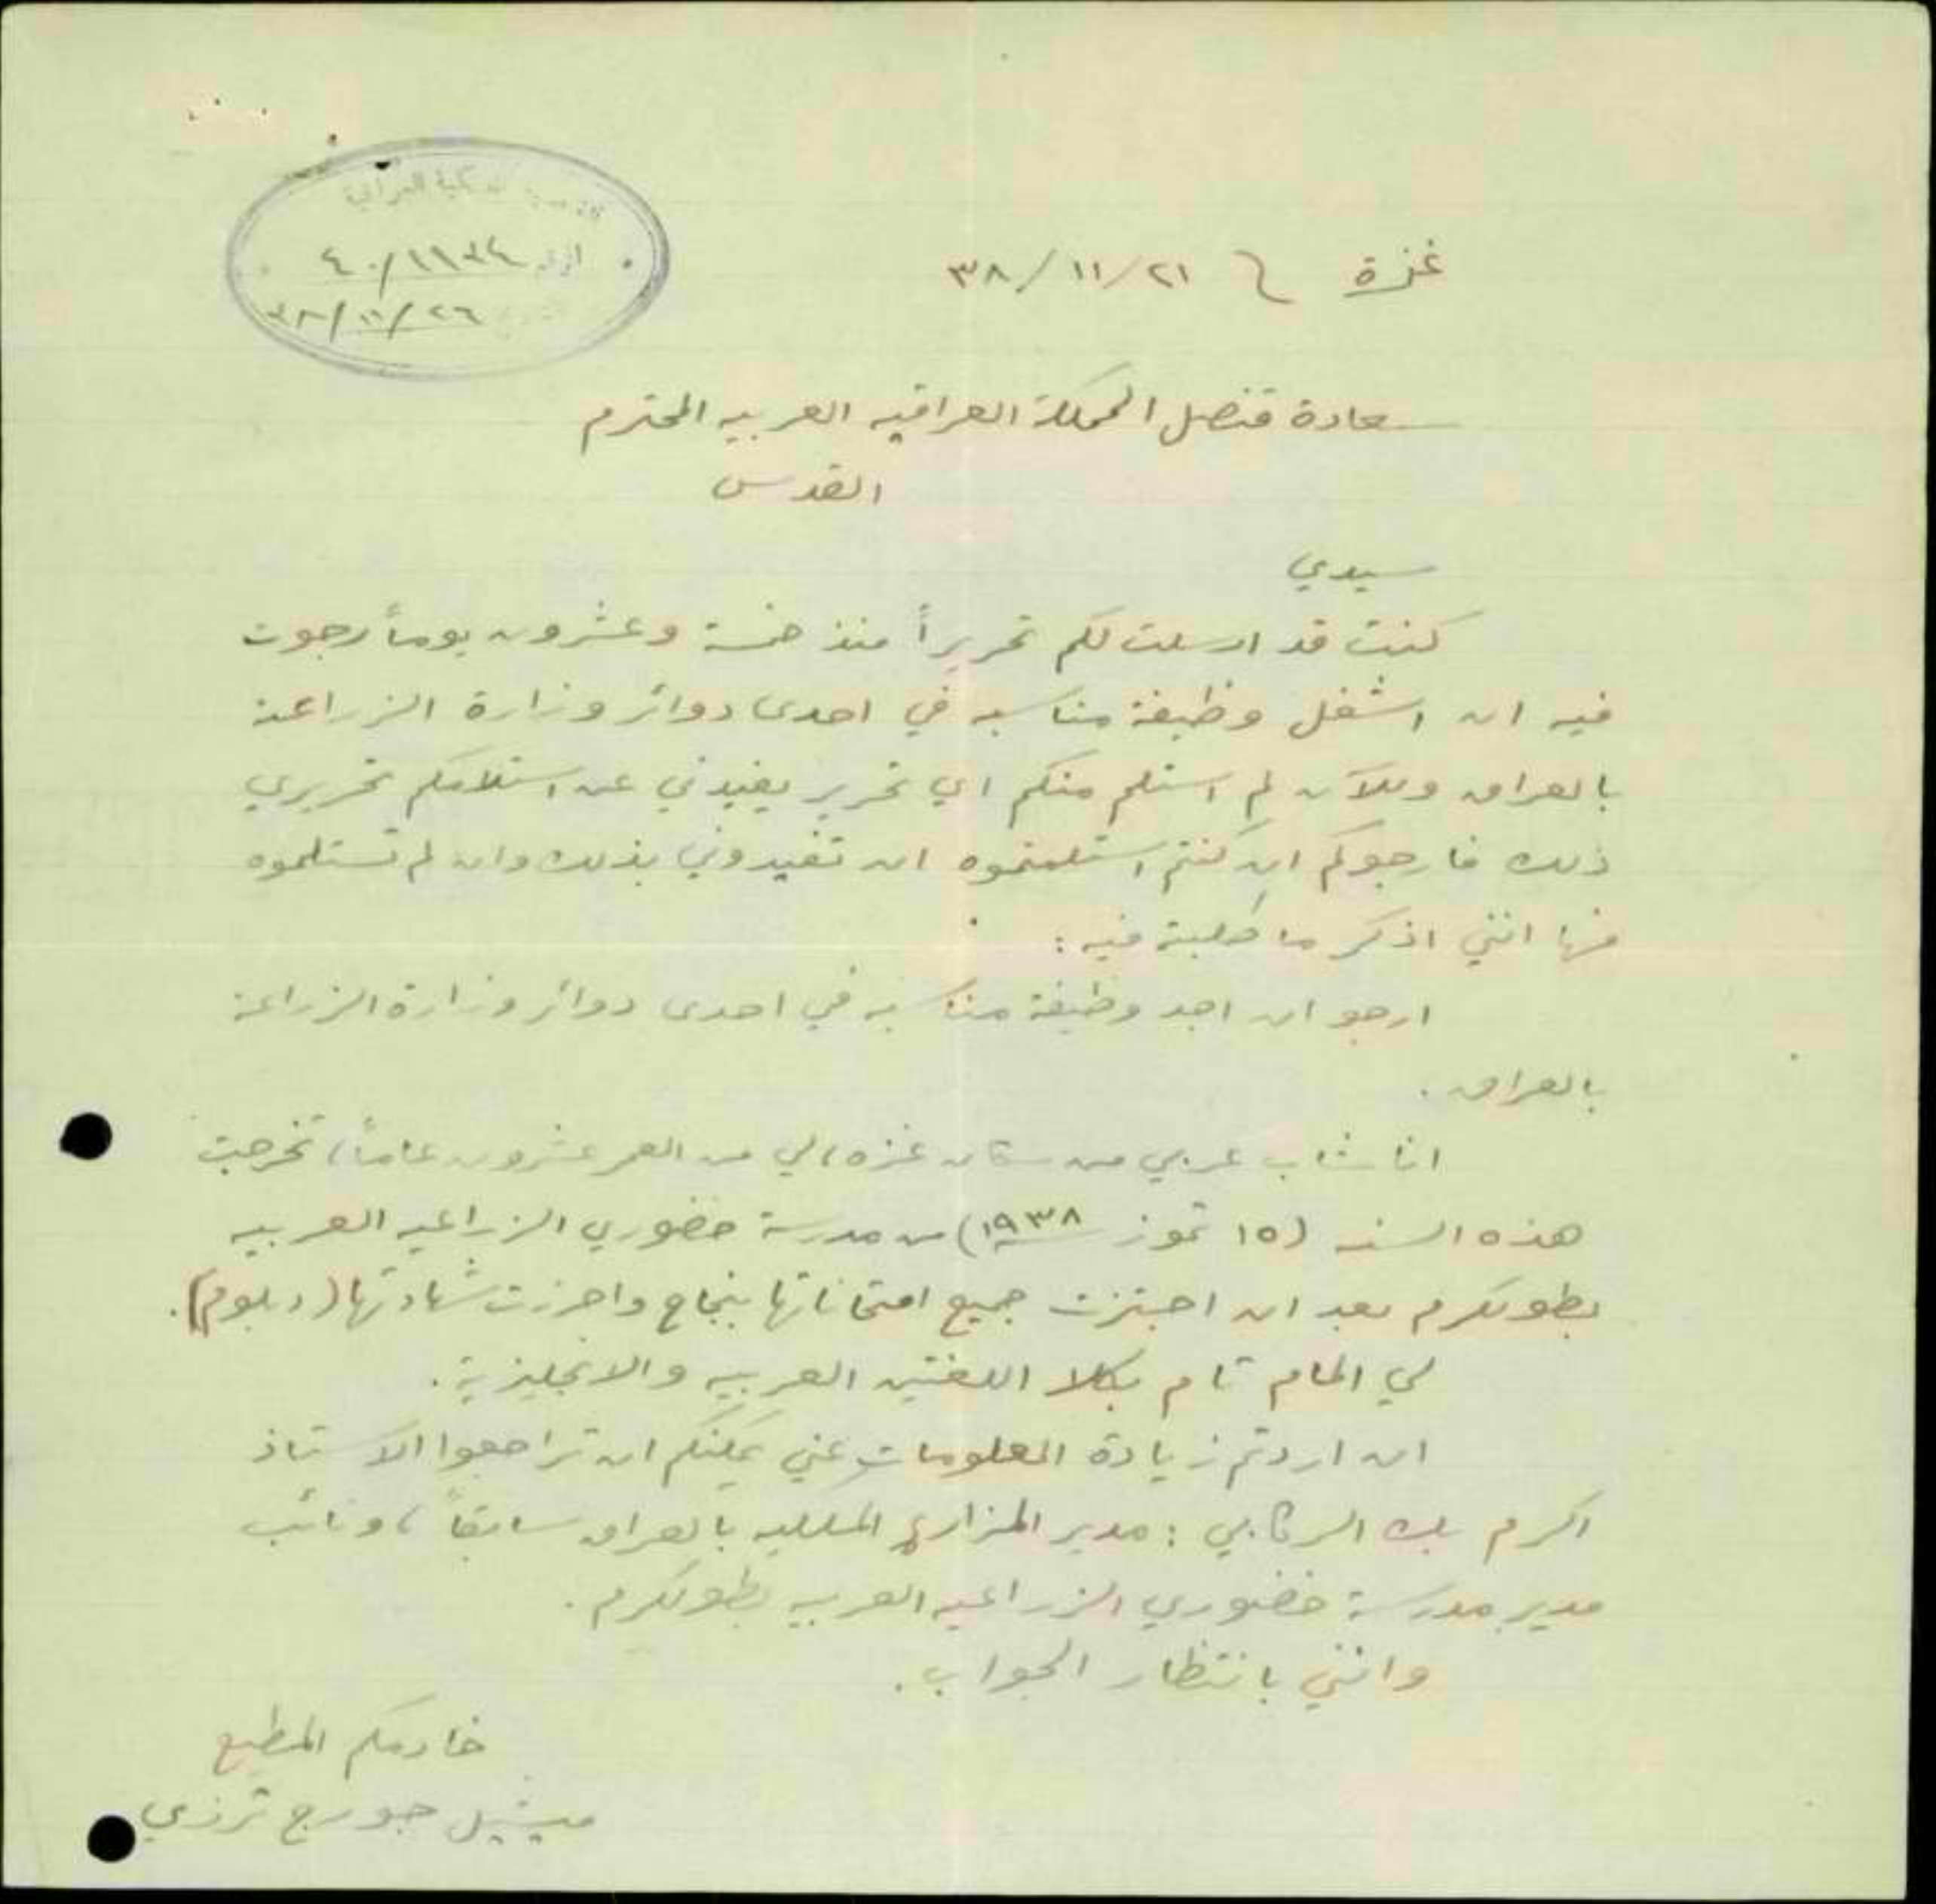 العراقية
الرقم ٤٠/١١٣٤
٣٨/١١/٢٦
غزة في ٢١/١١/٣٨
سعادة قنصل المملكة العراقيه العربيه المحترم
القدس
سيدي
كنت قد ارسلت لكم تحريراً منذ خمسة وعشرون يوماً رجوت
فيه ان اشغل وظيفة مناسبه في احدى دوائر وزارة الزراعة
بالعراق وللآن لم استلم منكم اي تحرير يفيدني عن استلامكم تحريري
ذلك فارجوكم ان كنتم استلمتموه ان تفيدوني بذلك وان لم تستلموه
فها انني اذكر ما طلبته فيه :
ارجو ان اجد وظيفة مناسبه في احدى دوائر وزارة الزراعة
بالعراق .
انا شاب عربي من سكان غزه، لي من العمر عشرون عاماً، تخرجت
هذه السنه (١٥ تموز ١٩٣٨) من مدرسة خضوري الزراعيه العربيه
بطولكرم بعد ان اجتزت جميع امتحاناتها بنجاح واحرزت شهادتها (دبلوم).
لي المام تام بكلا اللغتين العربيه والانجليزية.
ان اردتم زيادة المعلومات عني يمكنكم ان تراجعوا الاستاذ
اكرم بك الركابي : مدير المزارع الملكيه بالعراق سابقاً ، ونائب
مدير مدرسة خضوري الزراعيه العربيه بطولكرم .
وانني بانتظار الجواب .
خادمكم المطيع
ميشيل جورج ترزي